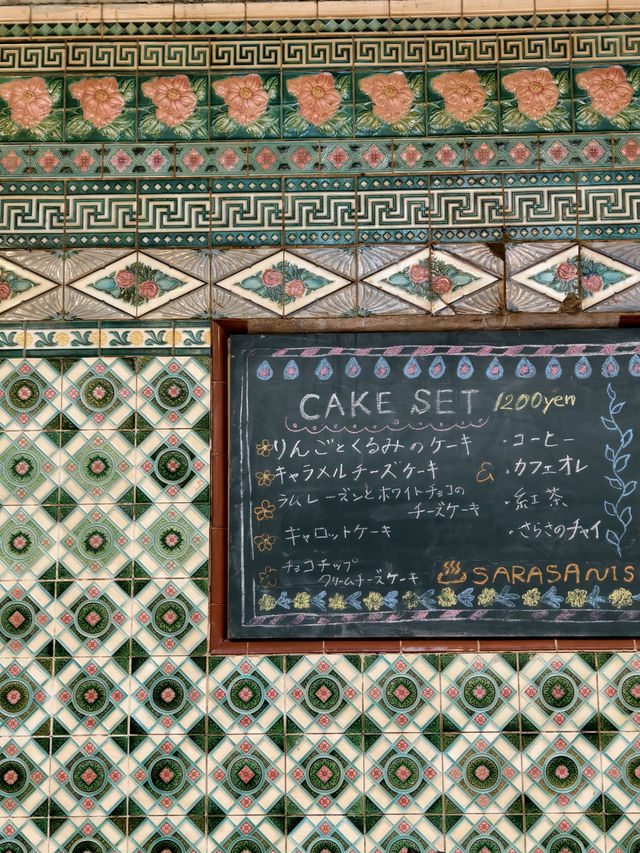 CAKE SET 1200yen
りんごとくるみのケーキ
キャラメルチーズケーキ
ラムレーズンとホワイトチョコの
チーズケーキ
キャロットケーキ
チョコチップ
クリームチーズケーキ
&
・コーヒー
・カフェオレ
・紅茶
・さらさのチャイ
♨SARASANIS